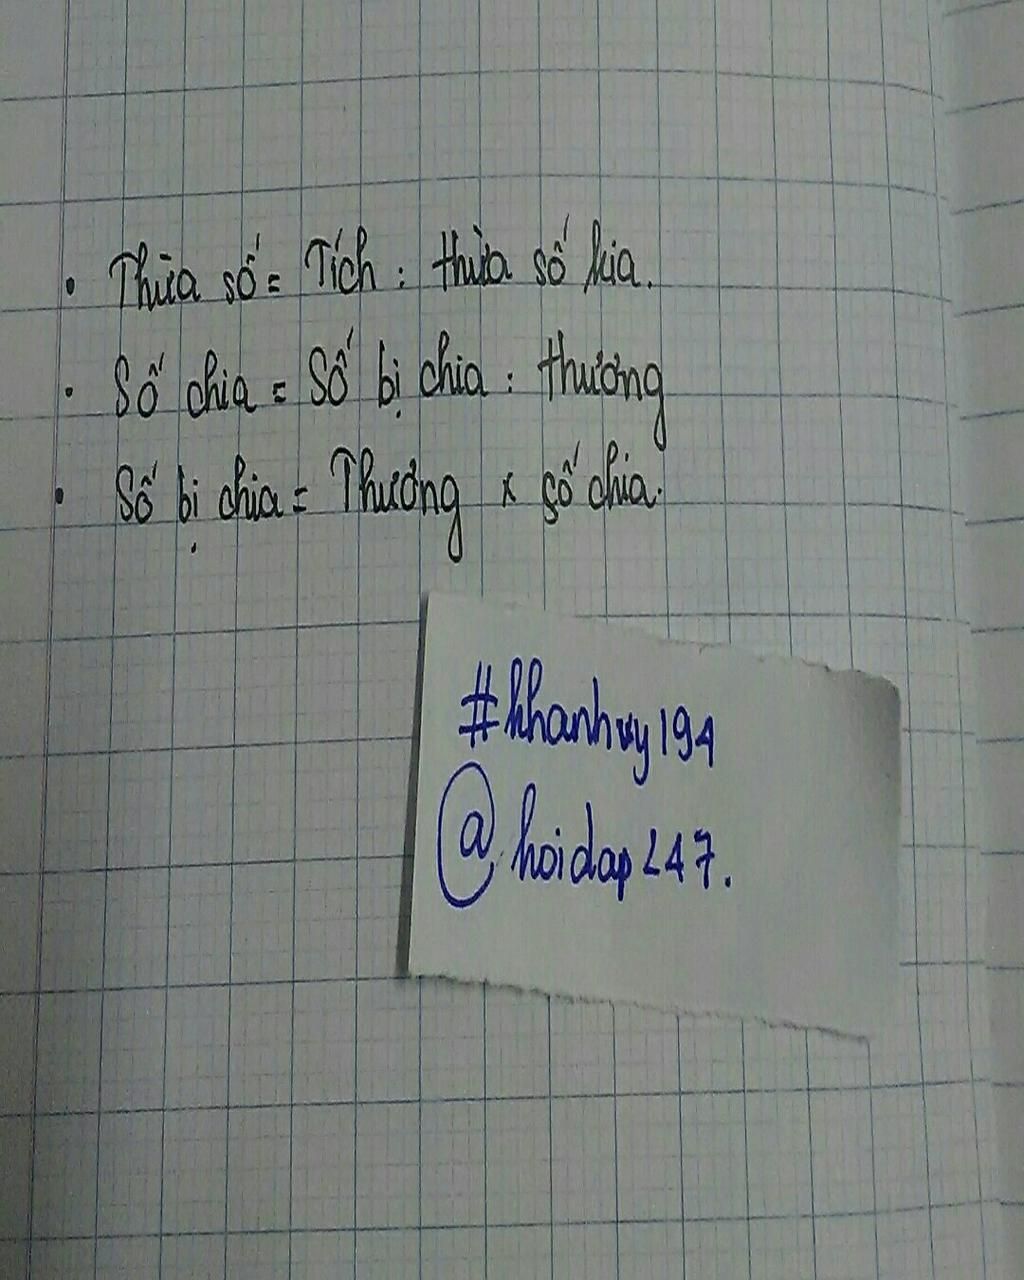 • Thừa số = Tích : thừa số kia.
• Số chia = Số bị chia : thương
• Số bị chia = Thương x số chia.
#khanhvy194
@hoidap247.